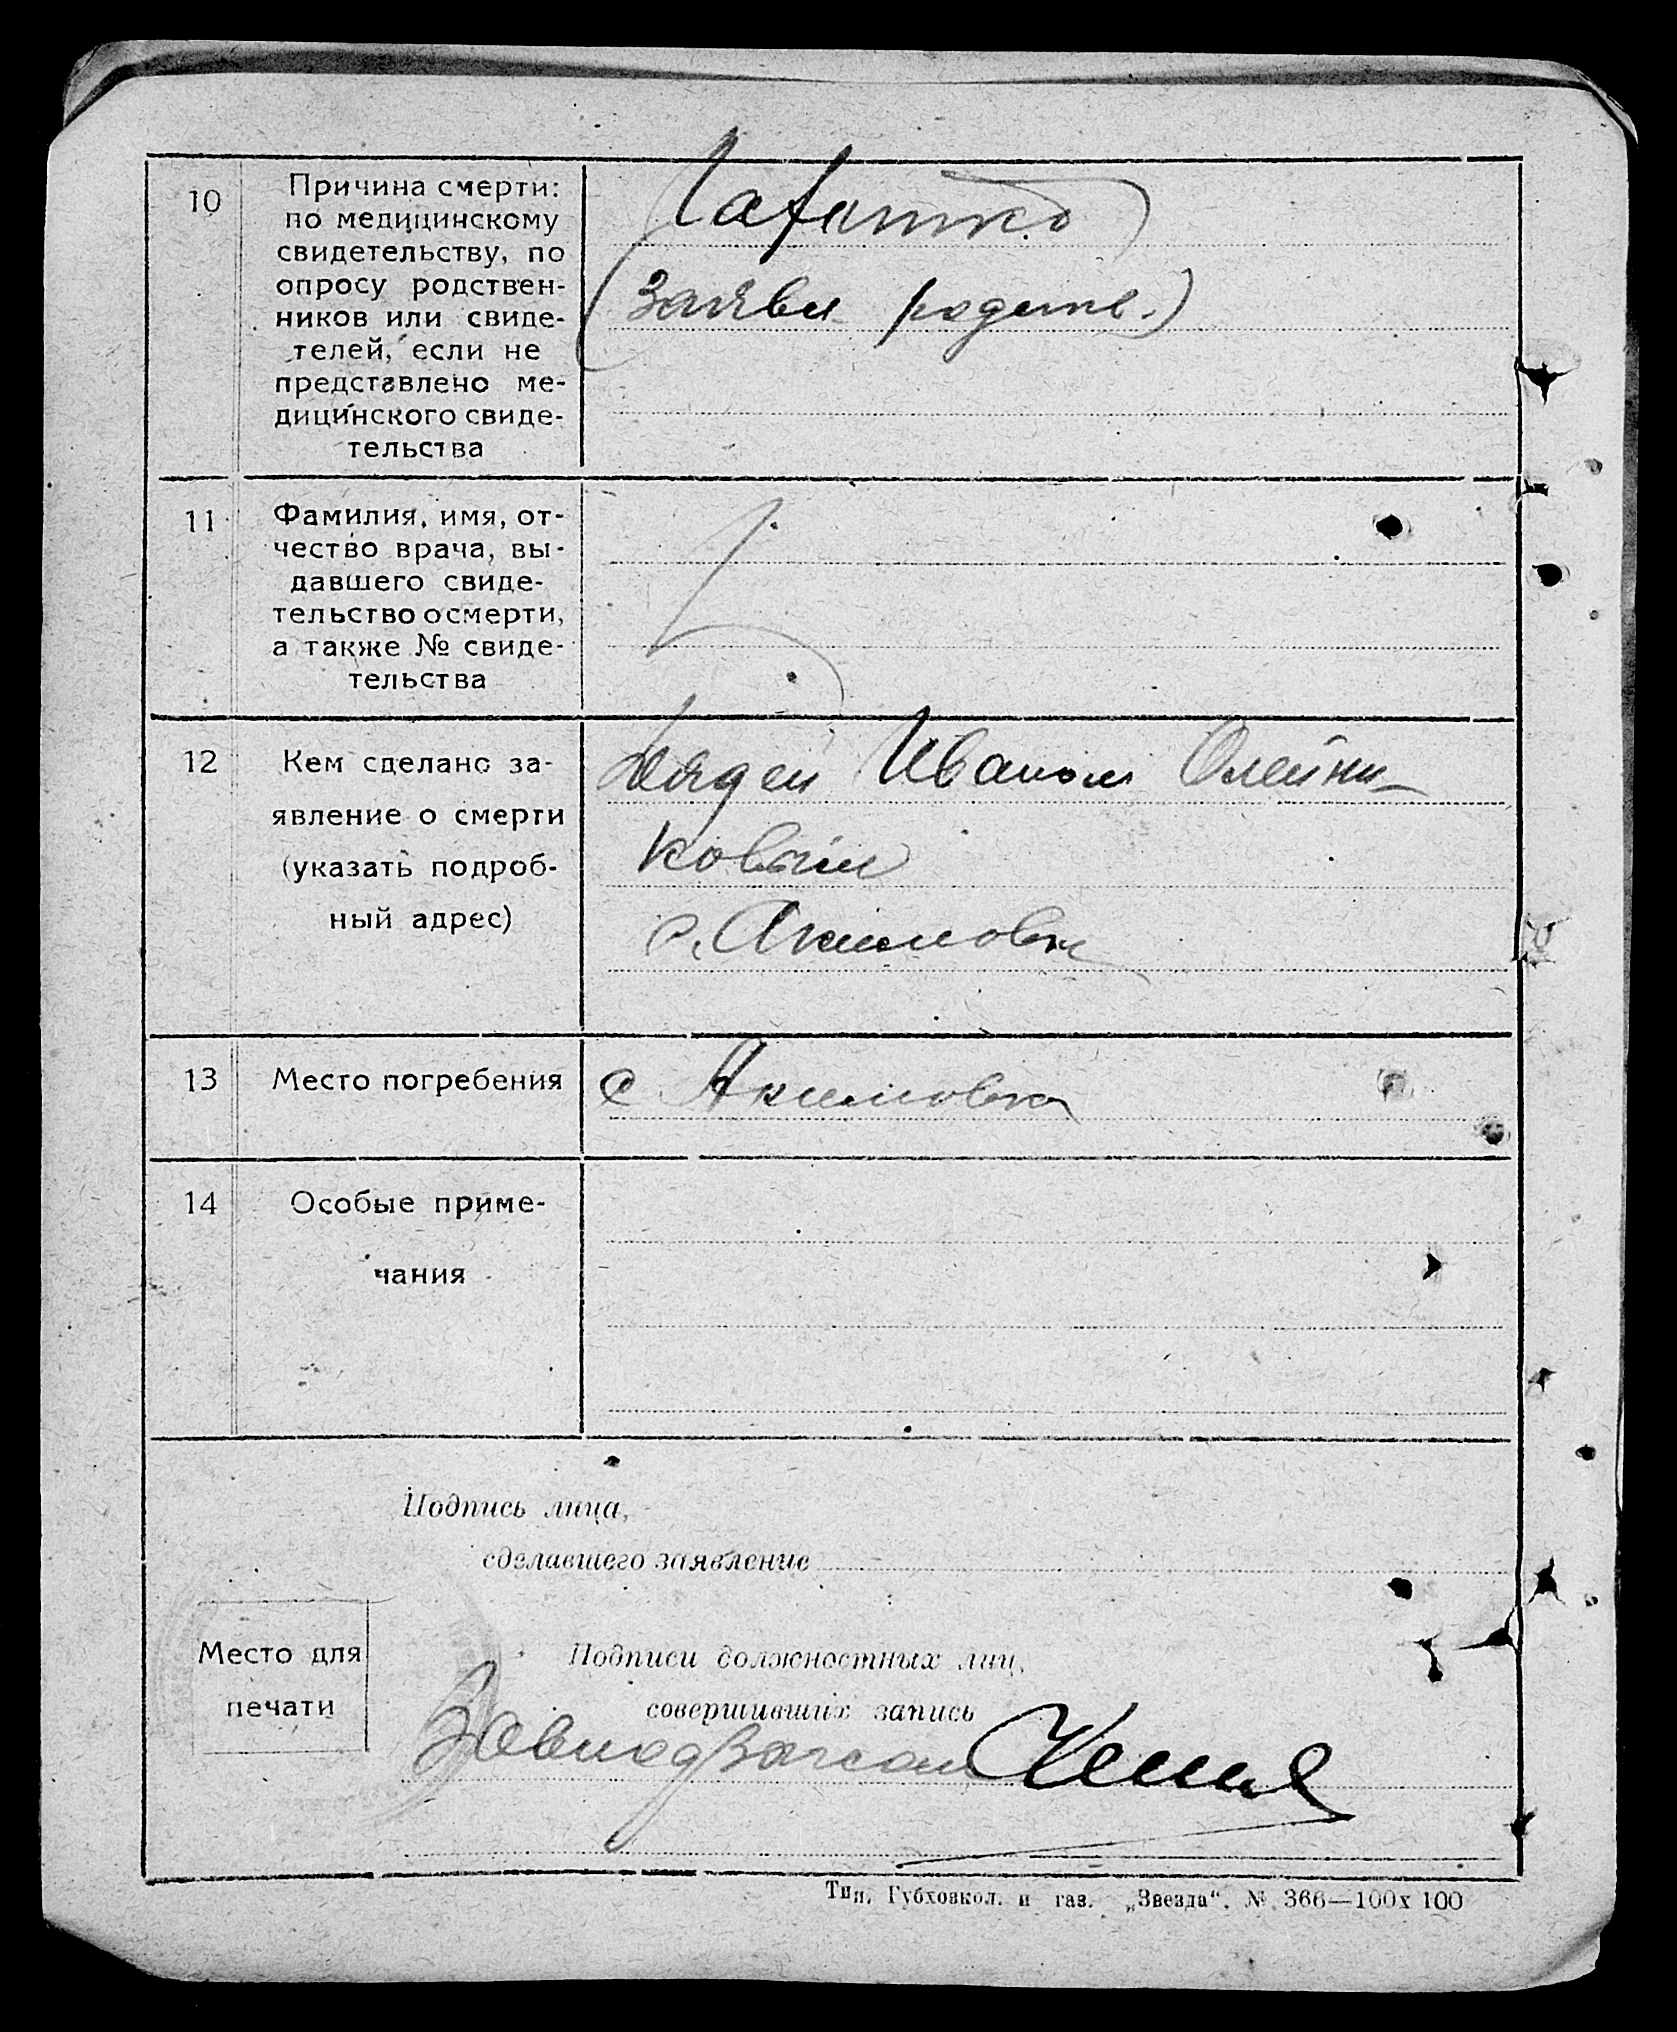 10
Причина смерти:
по медицинскому
свидетельству, по
опросу родствен-
ников или свиде-
телей, если не
представлено ме-
дицинского свиде-
тельства
(заявл родите.)
11
Фамилия, имя, от-
чество врача, вы-
давшего свиде-
тельство о смерти,
а также № свиде-
тельства
12
Кем сделано за-
явление о смерти
(указать подроб-
ный адрес)
Дядей Иваном Олейни-
ковым
с. Акимовка
13
Место погребения
с Акимовка
14
Особые приме-
чания
Подпись лица,
сделавшего заявление
Место для
печати
Подписи должностных лиц,
совершивших запись
Завподзагсом
Тип. Губхозкол. и газ. „Звезда“. № 366—100х100